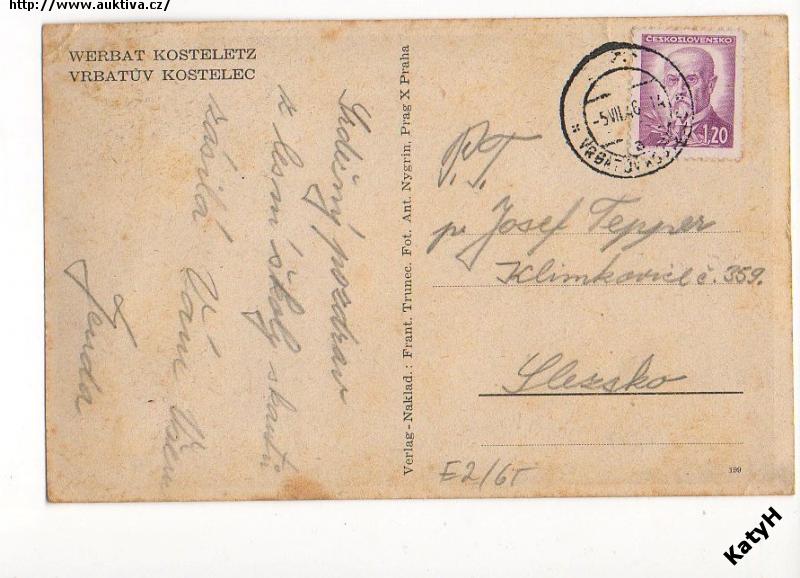 http://www.auktiva.cz/
WERBAT KOSTELETZ
VRBATŮV KOSTELEC
Srdečný pozdrav
z lesní školy skautů
zasílá Vám všem
Jenda
Verlag - Naklad.: Frant. Trunec. Fot. Ant. Nygrin, Prag X Praha
ČESKOSLOVENSKO
1,20
-5.VII.46-14
VRBATŮV KOS
a
P.T.
p. Josef Tepper
Klimkovice č. 359.
Slezsko
E2/6T
399
KatyH